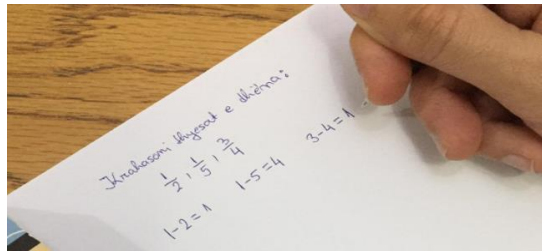 Krahasoni thyesat e dhëna:
1/2, 1/5, 3/4
1-2=1 1-5=4 3-4=1